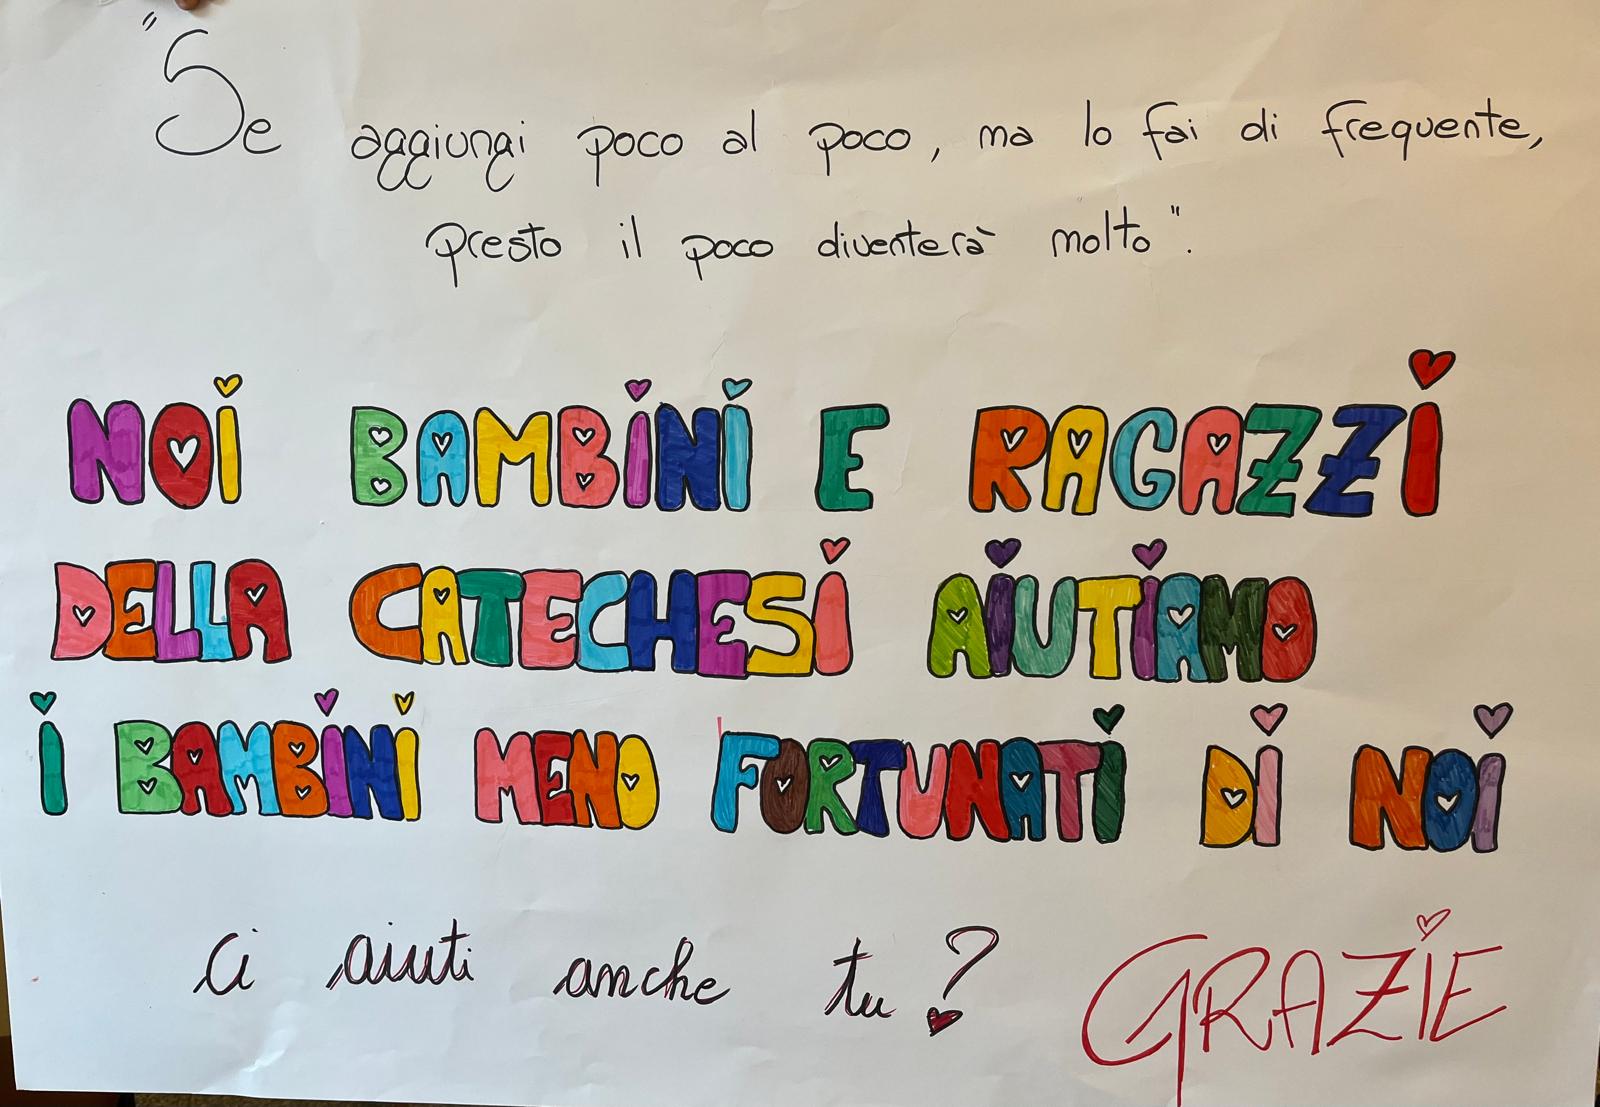 "Se aggiungi poco al poco, ma lo fai di frequente,
presto il poco diventerà molto".
NOI BAMBINI E RAGAZZI
DELLA CATECHESI AIUTIAMO
I BAMBINI MENO FORTUNATI DI NOI
Ci aiuti anche tu? GRAZIE